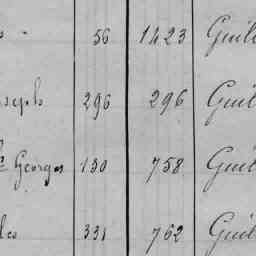 56 1423 Guil
seph 296 296 Guil
Georges 130 758 Guil
les 331 762 Guil